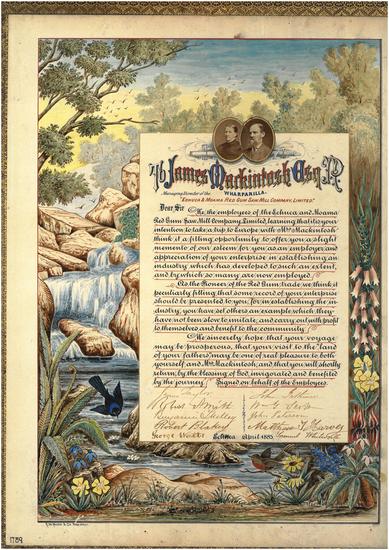 To James Mackintosh Esq. J.P.
WHARPARILLA.
Managing Director of the
"ECHUCA & MOAMA RED GUM SAW MILL COMPANY, LIMITED."
Dear Sir
We the employees of the Echuca and Moama
Red Gum Saw Mill Company, Limited, learning that it is your
intention to take a trip to Europe with Mrs Mackintosh
think it a fitting opportunity to offer you a slight
memento of our esteem for you as an employer, and
appreciation of your enterprise in establishing an
industry which has developed to such an extent,
and by which so many are now employed.
As the Pioneer of the Red Gum trade we think it
peculiarly fitting that some record of your enterprise
should be presented to you, for in establishing the in-
dustry, you have set others an example which they
have not been slow to imitate, and carry out with profit
to themselves and benefit to the community.
We sincerely hope that your voyage
may be prosperous, that your visit to the "land
of your fathers" may be one of real pleasure to both
yourself and Mrs Mackintosh, and that you will shortly
return, by the blessing of God, invigorated and benefited
by the journey. Signed on behalf of the Employees.
Taylor John
Smith
Benjamin
Robert Blakey Matthew Harvey
George Echuca April 1885. Samuel
1789